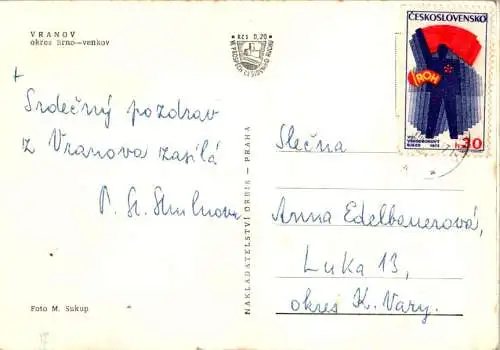 VRANOV
okres Brno-venkov
Kčs 0,20
VE PROSPĚCH
Srdečný pozdrav
z Vranova zasílá
Foto M. Sukup
NAKLADATELSTVÍ ORBIS - PRAHA
ČESKOSLOVENSKO
ROH
VŠEODBOROVÝ
SJEZD 1972
h 30
Slečna
Anna Edelbauerová,
Luka 13,
okres K. Vary.